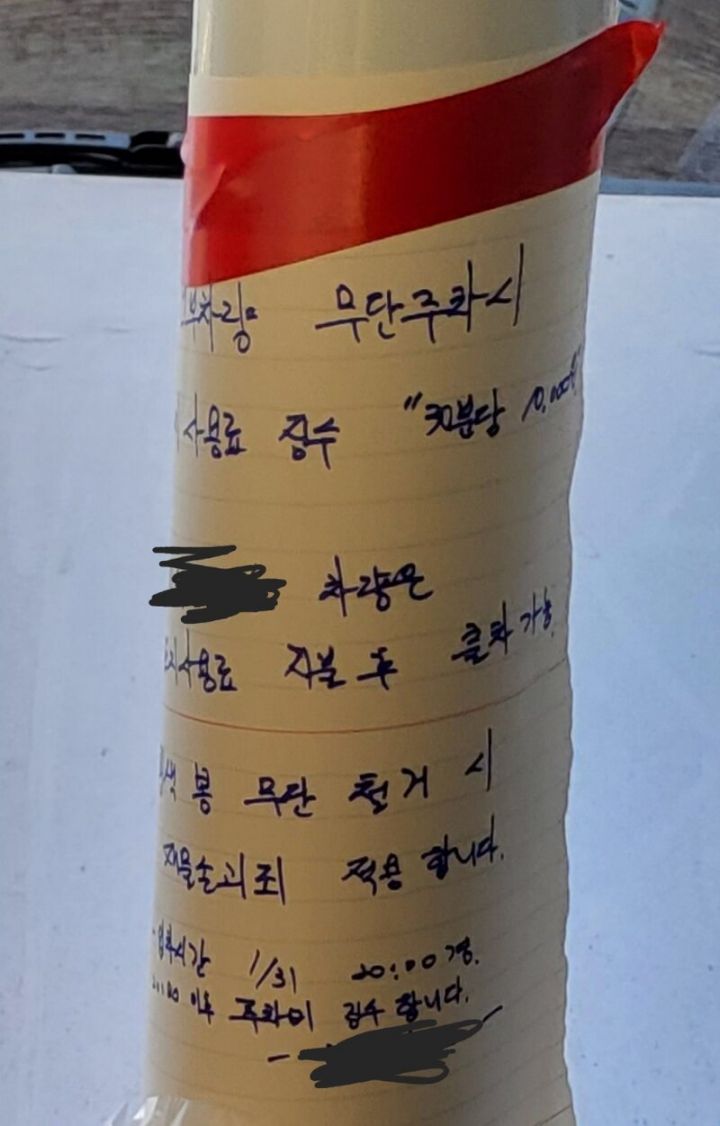 부차량 무단주차시
사용료 징수 "30분당 10,000원"
차량은
지사용료 지불 후 출차 가능.
색 봉 무단 철거 시
재물손괴죄 적용 합니다.
- 입차시간 1/31 20:00경.
이후 주차비 징수 합니다.